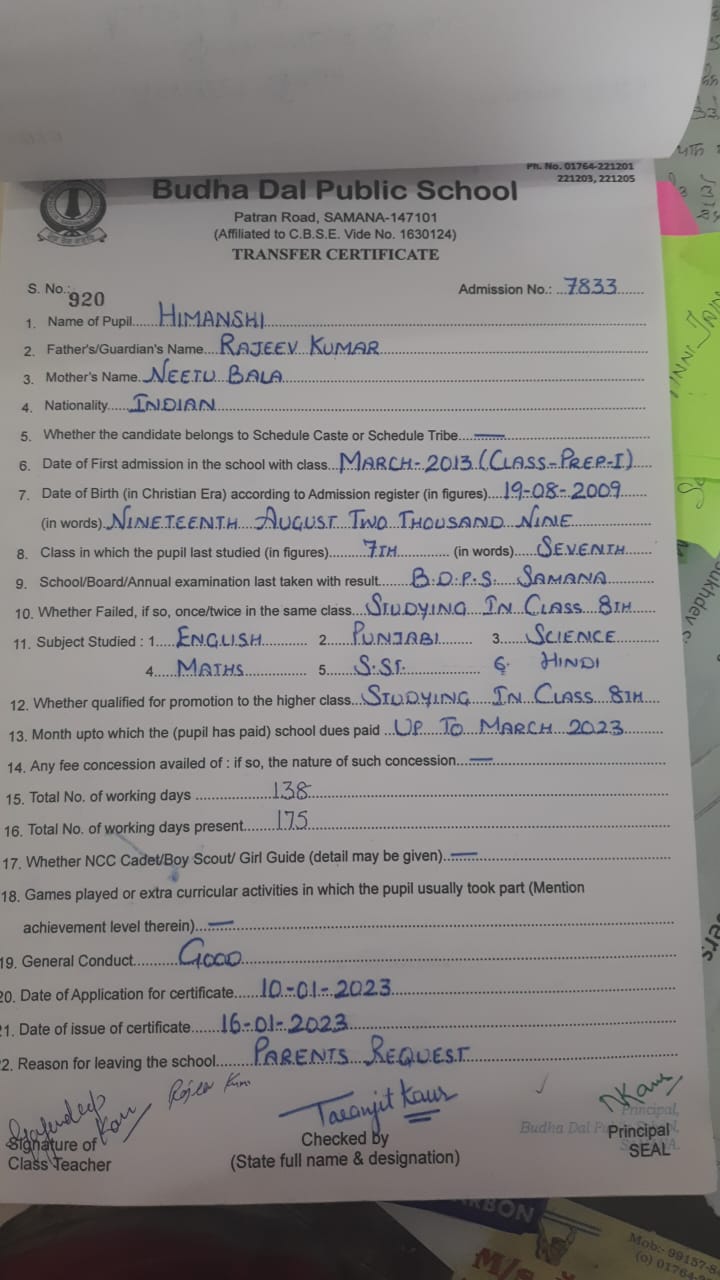 Ph. No. 01764-221201
221203, 221205
Budha Dal Public School
Patran Road, SAMANA-147101
(Affiliated to C.B.S.E. Vide No. 1630124)
TRANSFER CERTIFICATE
S. No.: 920 Admission No.: ...7833
1. Name of Pupil HIMANSHI
2. Father's/Guardian's Name RAJEEV KUMAR
3. Mother's Name NEETU BALA
4. Nationality INDIAN
5. Whether the candidate belongs to Schedule Caste or Schedule Tribe —
6. Date of First admission in the school with class MARCH-2013 (CLASS-PREP-I)
7. Date of Birth (in Christian Era) according to Admission register (in figures) 19-08-2009
(in words) NINETEENTH AUGUST TWO THOUSAND NINE
8. Class in which the pupil last studied (in figures) 7TH (in words) SEVENTH
9. School/Board/Annual examination last taken with result B.D.P.S. SAMANA
10. Whether Failed, if so, once/twice in the same class STUDYING IN CLASS 8TH
11. Subject Studied : 1 ENGLISH 2 PUNJABI 3. SCIENCE
4 MATHS 5 S.ST. 6. HINDI
12. Whether qualified for promotion to the higher class STUDYING IN CLASS 8TH
13. Month upto which the (pupil has paid) school dues paid UP TO MARCH 2023
14. Any fee concession availed of : if so, the nature of such concession —
15. Total No. of working days 138
16. Total No. of working days present 175
17. Whether NCC Cadet/Boy Scout/ Girl Guide (detail may be given) —
18. Games played or extra curricular activities in which the pupil usually took part (Mention
achievement level therein) —
19. General Conduct GOOD
20. Date of Application for certificate 10-01-2023
21. Date of issue of certificate 16-01-2023
2. Reason for leaving the school PARENTS REQUEST
Taranjit Kaur
Signature of
Class Teacher
Checked by
(State full name & designation)
Principal,
Budha Dal
Principal
SEAL
Sukhdev
RBON
M/s
Mob:- 99157-8
(o) 01764-